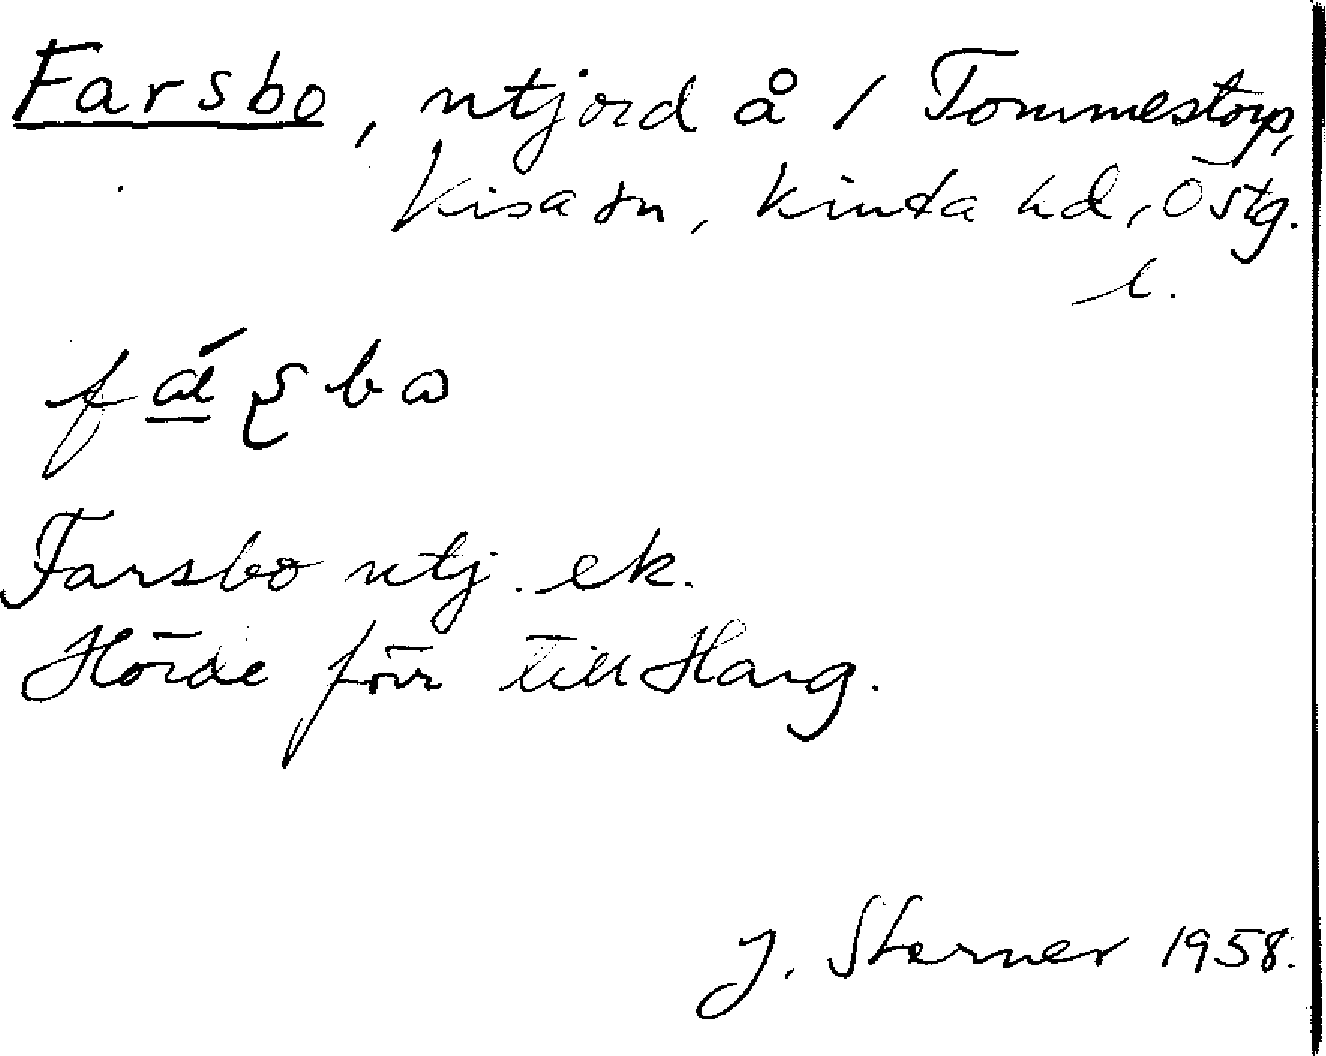 Farsbo, utjord å / Tommestorp,
Kisa sn, Kinda hd, Östg.
l.
fá̱ʂbω
Farsbo utj. ek.
Hörde förr till Harg.
J. Sterner 1958.